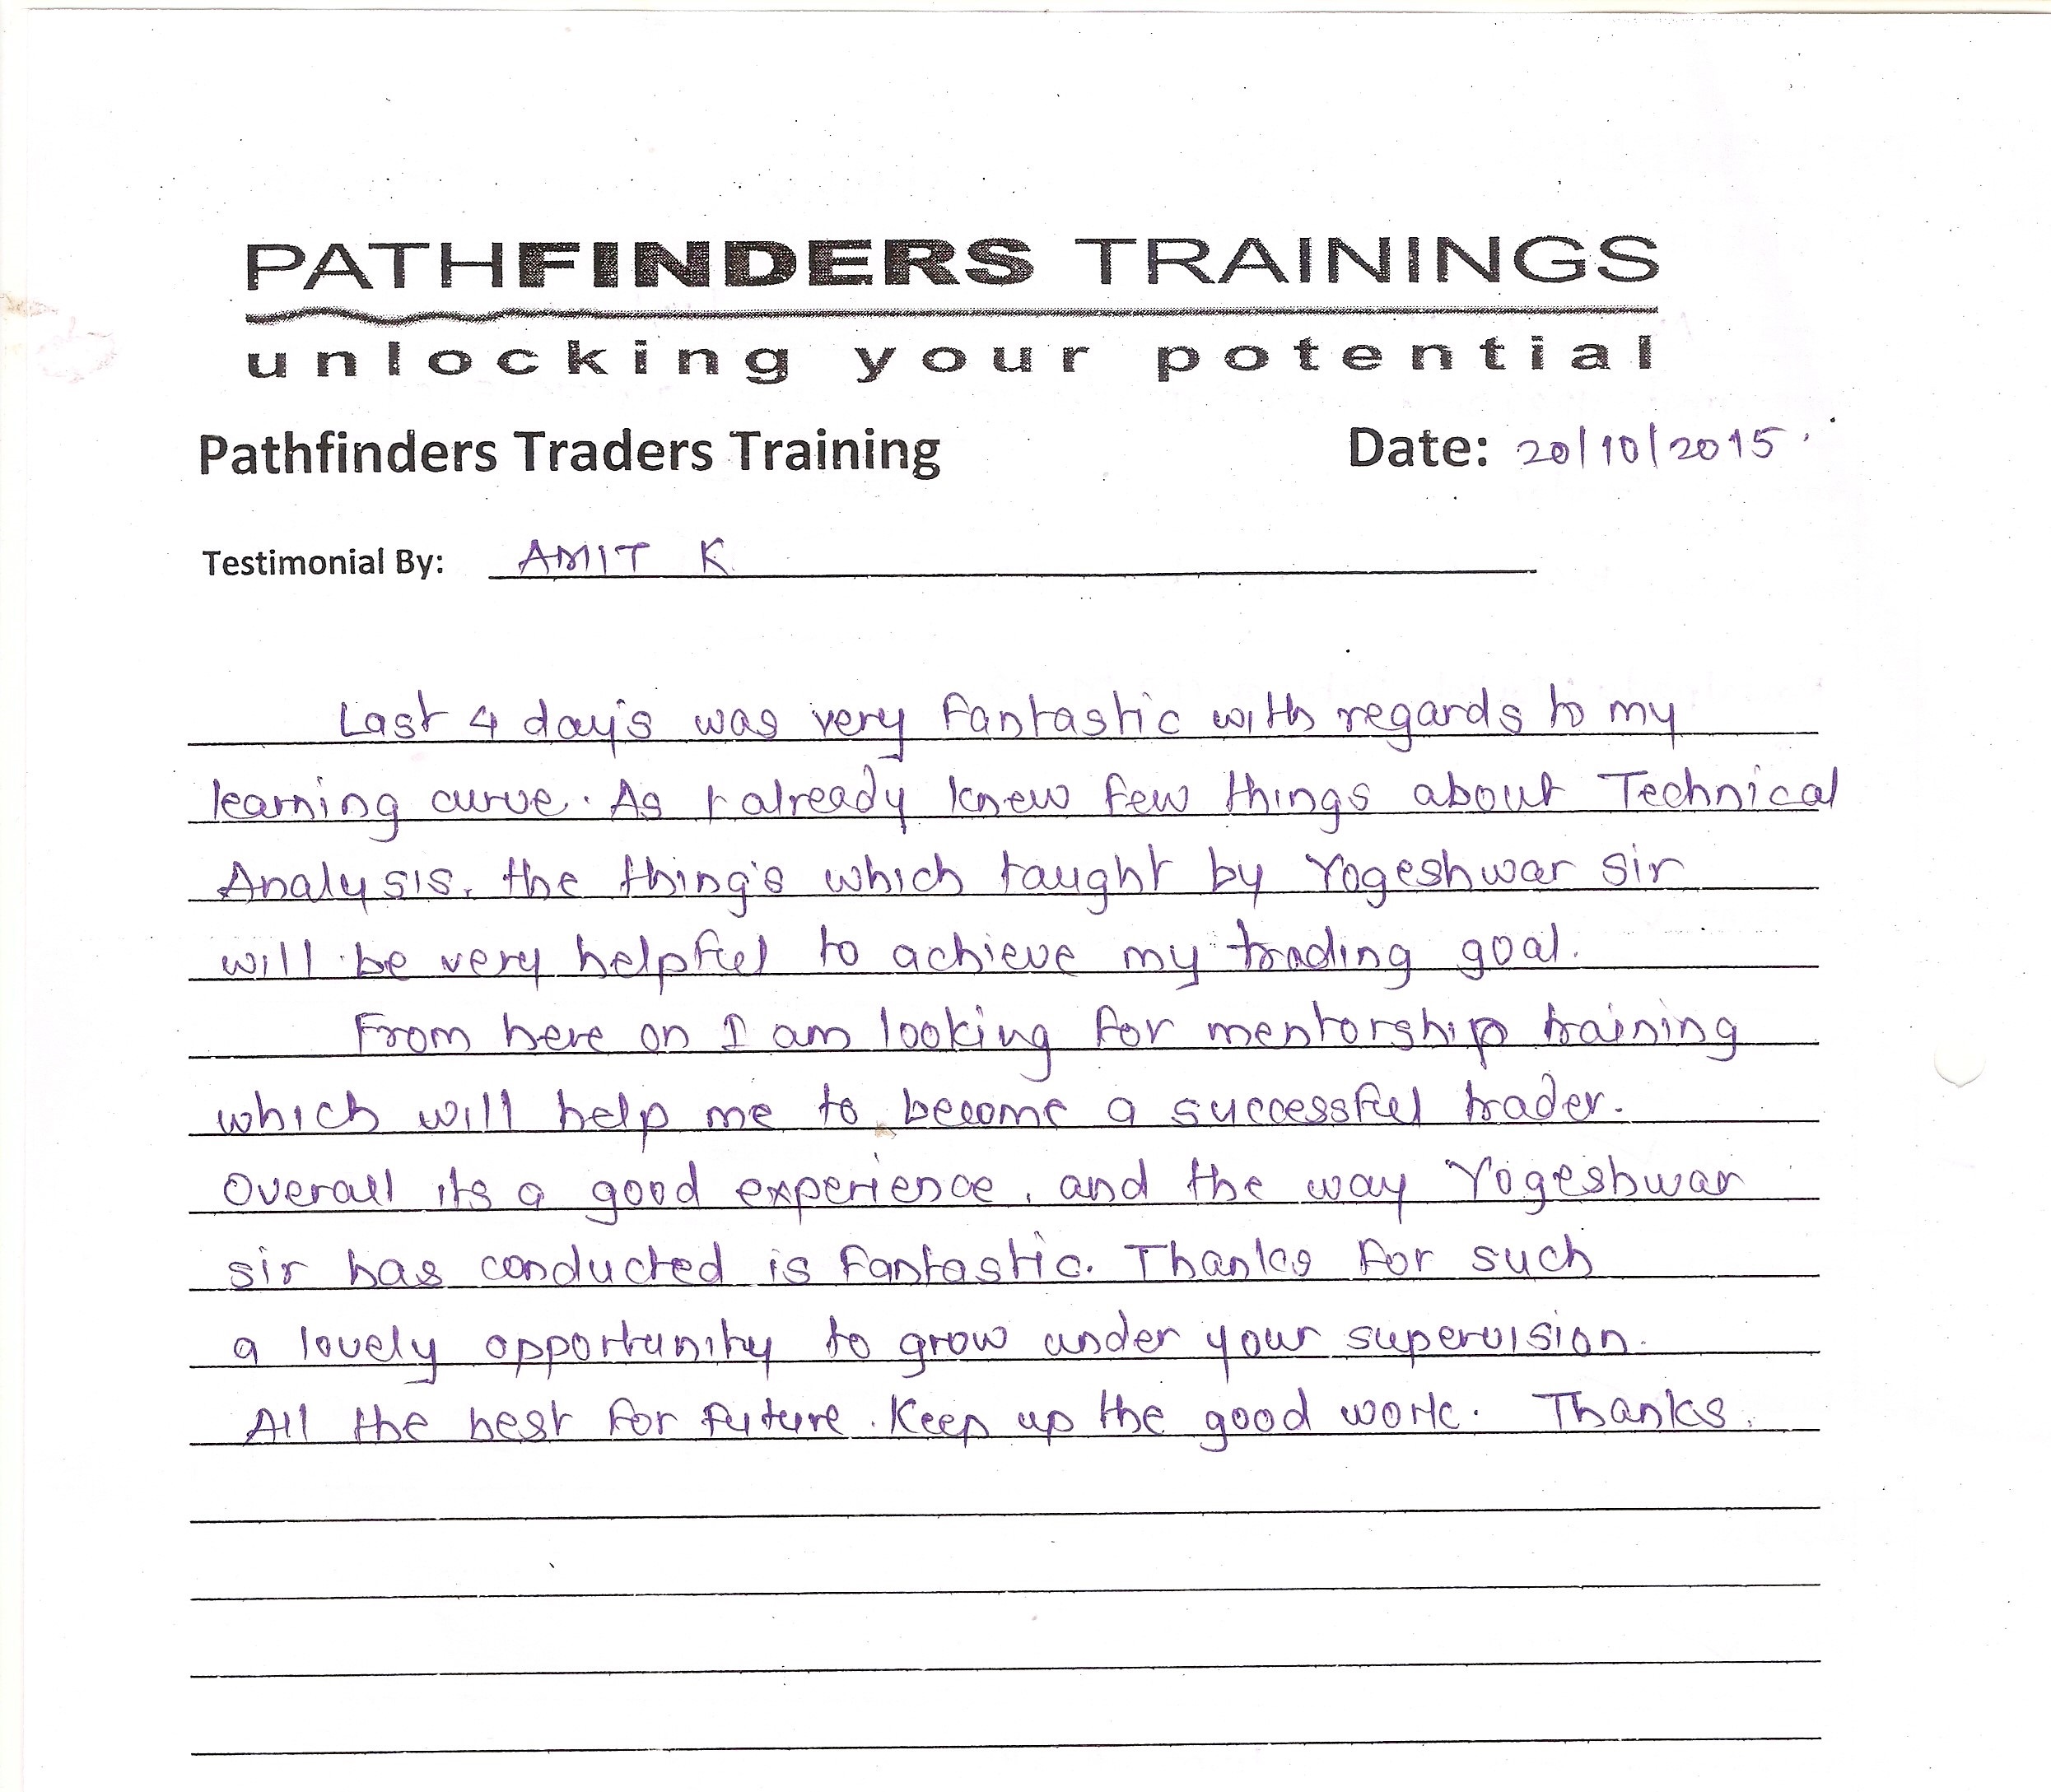 PATHFINDERS TRAININGS
unlocking your potential
Pathfinders Traders Training Date: 20/10/2015
Testimonial By: AMIT K
Last 4 day's was very fantastic with regards to my
learning curve. As I already knew few things about Technical
Analysis, the thing's which taught by Yogeshwar sir
will be very helpful to achieve my trading goal.
From here on I am looking for mentorship training
which will help me to become a successful trader.
Overall its a good experience, and the way Yogeshwar
sir has conducted is fantastic. Thanks for such
a lovely opportunity to grow under your supervision.
All the best for future. Keep up the good work. Thanks.